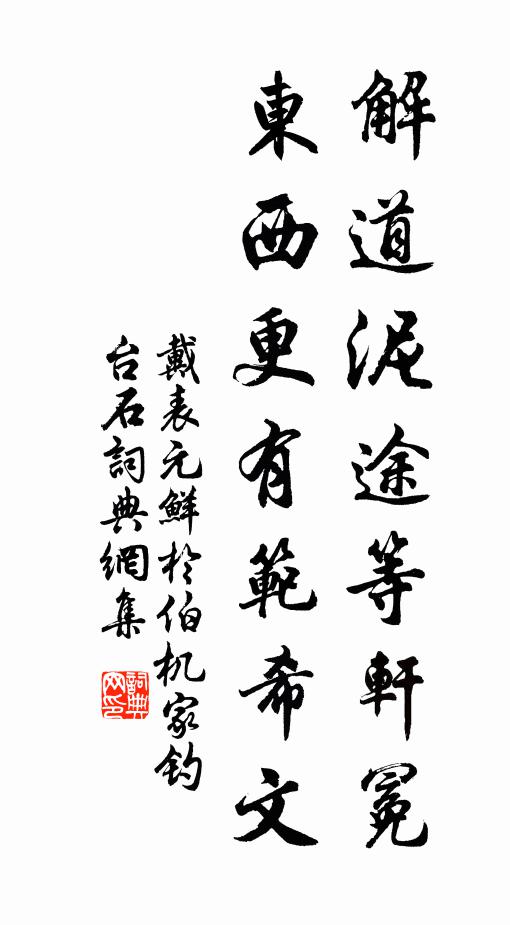 解道泥途等軒冕
東西更有範希文
戴表元鮮於伯机家鈞
台石詞典網集
詞典网印